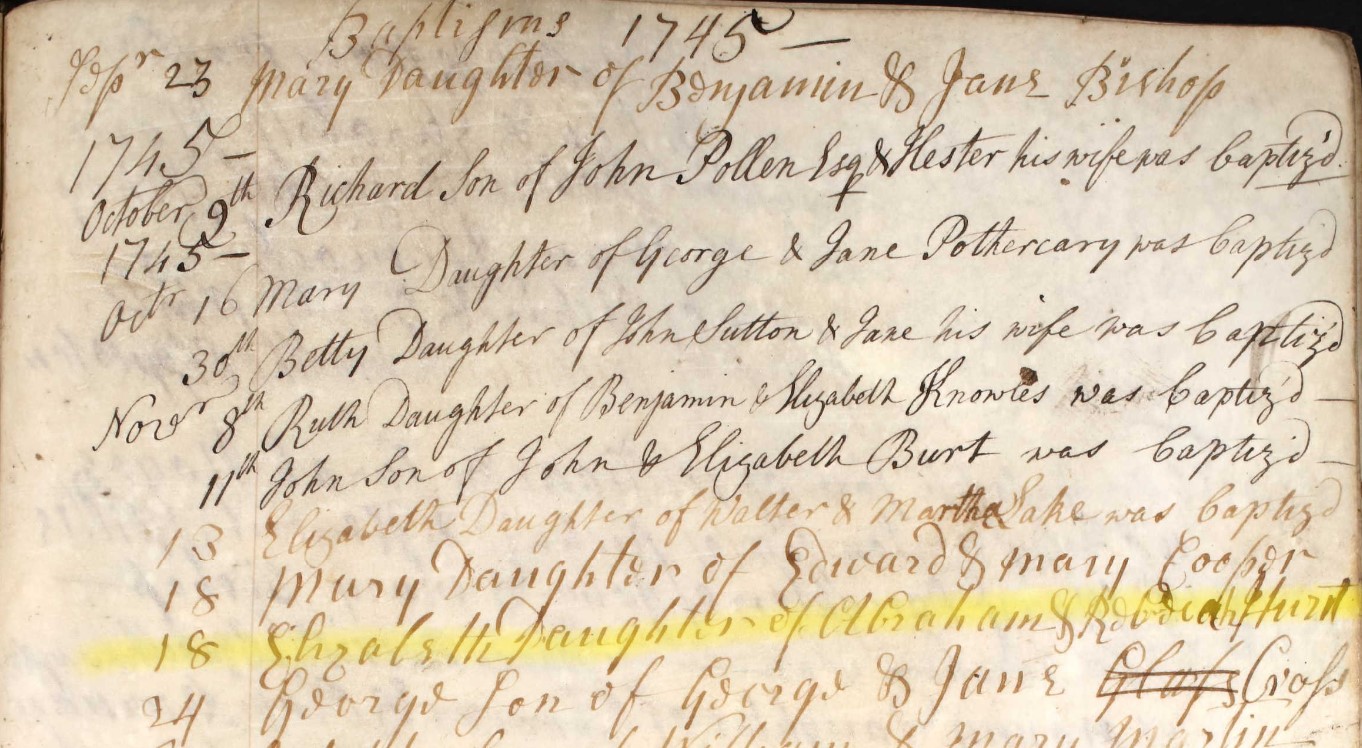 Baptisms 1745 —
Sepr 23 Mary Daughter of Benjamin & Jane Bishop
1745 —
October 9th Richard Son of John Pollen Esq & Hester his wife was baptiz'd.
1745 —
Octr 16 Mary Daughter of George & Jane Pothercary was baptiz'd
30th Betty Daughter of John Sutton & Jane his wife was baptiz'd
Novr 8th Ruth Daughter of Benjamin & Elizabeth Knowles was baptiz'd —
11th John Son of John & Elizabeth Burt was baptiz'd —
13 Elizabeth Daughter of Walter & Martha Lake was baptiz'd
18 Mary Daughter of Edward & Mary Cooper
18 Elizabeth Daughter of Abraham & Hurst
24 George Son of George & Jane Cross
William & Mary